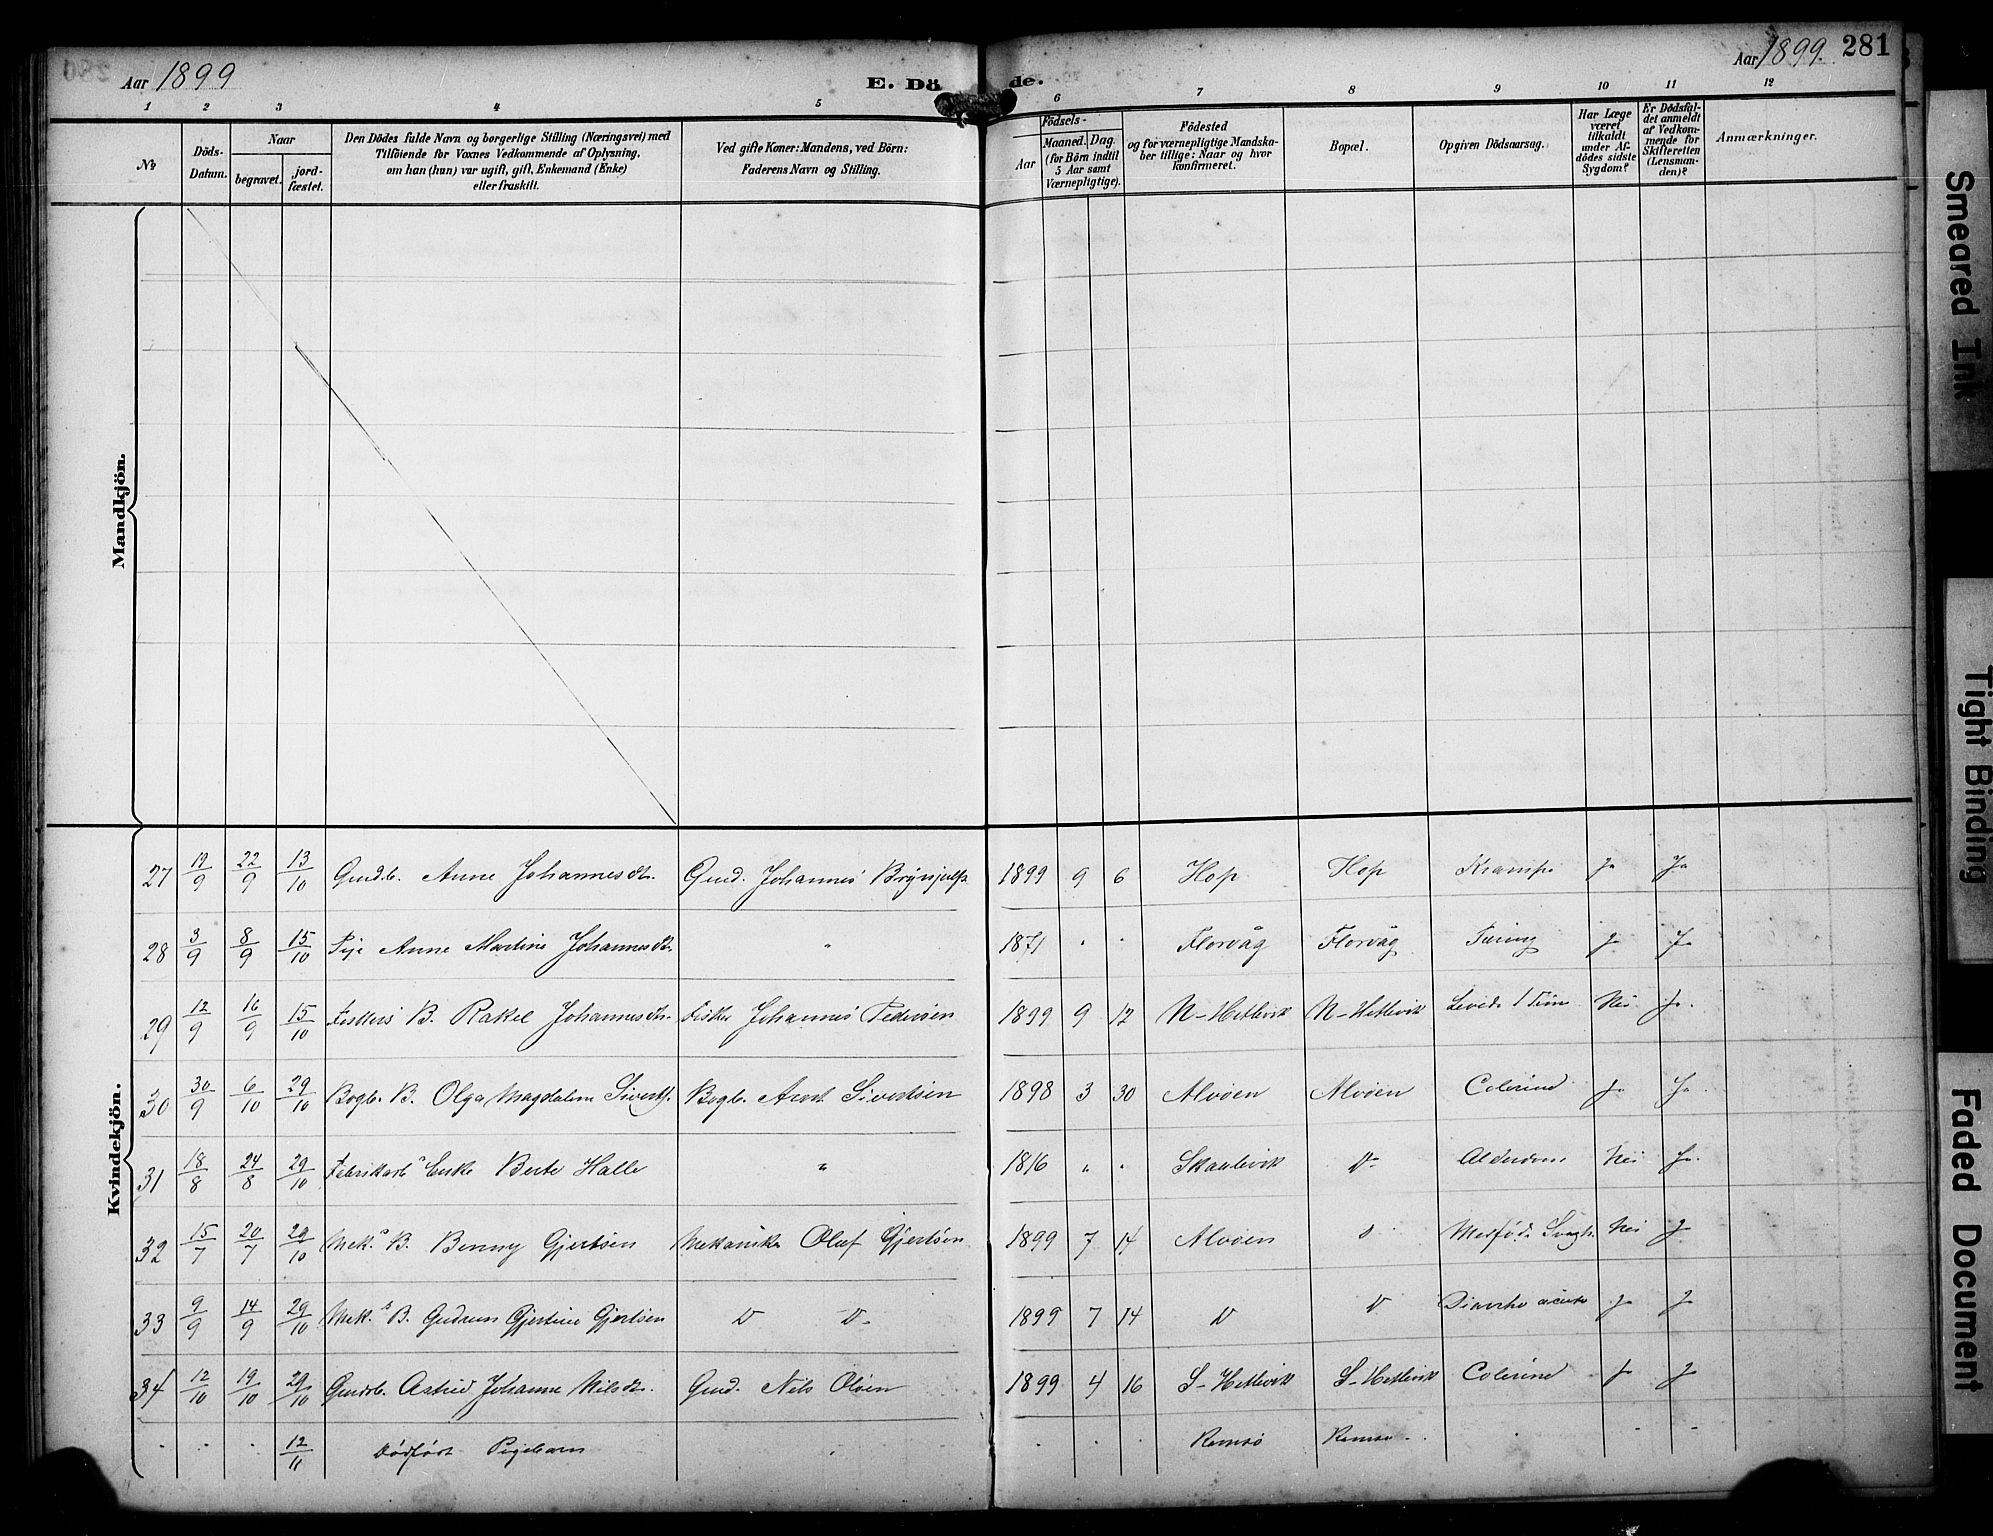 Aar 1899 E. Dö de. Aar 1899. 281
1 2 3 4 5 6 7 8 9 10 11 12
№
Döds-
Datum.
Naar
begravet.
jord-
fæstet.
Den Dödes fulde Navn og borgerlige Stilling (Næringsvei) med
Tilföiende for Voxnes Vedkommende af Oplysning,
om han (hun) var ugift, gift, Enkemand (Enke)
eller fraskilt.
Ved gifte Koner: Mandens, ved Börn:
Faderens Navn og Stilling.
Födsels-
Aar
Maaned. Dag.
(for Börn indtil
5 Aar samt
Værnepligtige).
Födested
og for værnepligtige Mandska-
ber tillige: Naar og hvor
konfirmeret.
Bopæl.
Opgiven Dödsaarsag.
Har Læge
været
tilkaldt
under Af-
dödes sidste
Sygdom?
Er Dödsfal-
det anmeldt
af Vedkom-
mende for
Skifteretten
(Lensman-
den)?
Anmærkninger.
Mandkjön.
Kvindekjön.
27 19/9 22/9 13/10 Gmdb. Anne Johannesdt. Gmd. Johannes 1899 9 6 Hop Hop Krampe Ja Ja
28 3/9 8/9 15/10 Pige Anne Martine Johannesdt. " 1871 " " Florvåg Florvåg Tæring Ja Ja
29 12/9 16/9 15/10 Fiskers B. Rakel Johannesdt. Fisker Johannes Pedersen 1899 9 12 N-Hetlevik N-Hetlevik Levede 1 Time Nei Ja.
30 30/9 6/10 29/10 Bogb. B. Olga Magdalene Sivert Bogb. Sivertsen 1898 3 30 Alvøen Alvøen Colerine Ja Ja.
31 18/8 24/8 29/10 Fabrikarbs Enke Berte Halle " 1816 " " Skaalevik D- Alderdom Nei Ja.
32 15/7 20/7 29/10 Mek.s B. Benny Gjertsen Mekaniker Oluf Gjertsen 1899 7 14 Alvøen Medfødt Svagh. Nei J
33 9/9 14/9 29/10 Mek.s B. Gudrun Gjertine Gjertsen D D- 1899 7 14 D D Ja J
34 12/10 19/10 29/10 Gmdb. Astrid Johanne Nilsdt. Gmd. Nils Olsen 1899 4 16 S-Hetlevik S-Hetlevik Colerine Ja J
12/11 Dødfødt Pigebarn Ramsø Ramsø
Smeared Ink
Tight Binding
Faded Document